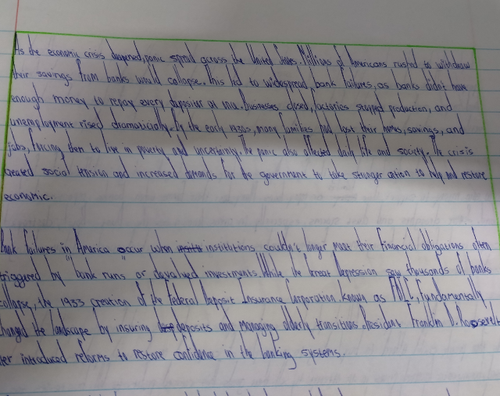 As the economic crisis deepened, panic spread across the United States. Millions of Americans rushed to withdraw
their savings from banks would collapse. This led to widespread bank failures, as banks didn't have
enough money to repay every depositor at once. Businesses closed, factories stopped production, and
unemployment rised dramatically. By the early 1930s, many families had lost their homes, savings, and
jobs, forcing them to live in poverty and uncertainty. The panic also affected daily life and society. The crisis
created social tension and increased demands for the government to take stronger action to help and restore
economic.
Bank failures in America occur when institutions couldn't longer meet their financial obligations often
triggered by "bank runs" or devalued investments. While the Great Depression saw thousands of banks
collapse, the 1933 creation of the Federal Deposit Insurance Corporation known as FDIC, fundamentally
changed the landscape by insuring deposits and managing orderly transitions. President Franklin D. Roosevelt
introduced reforms to restore confidence in the banking systems.